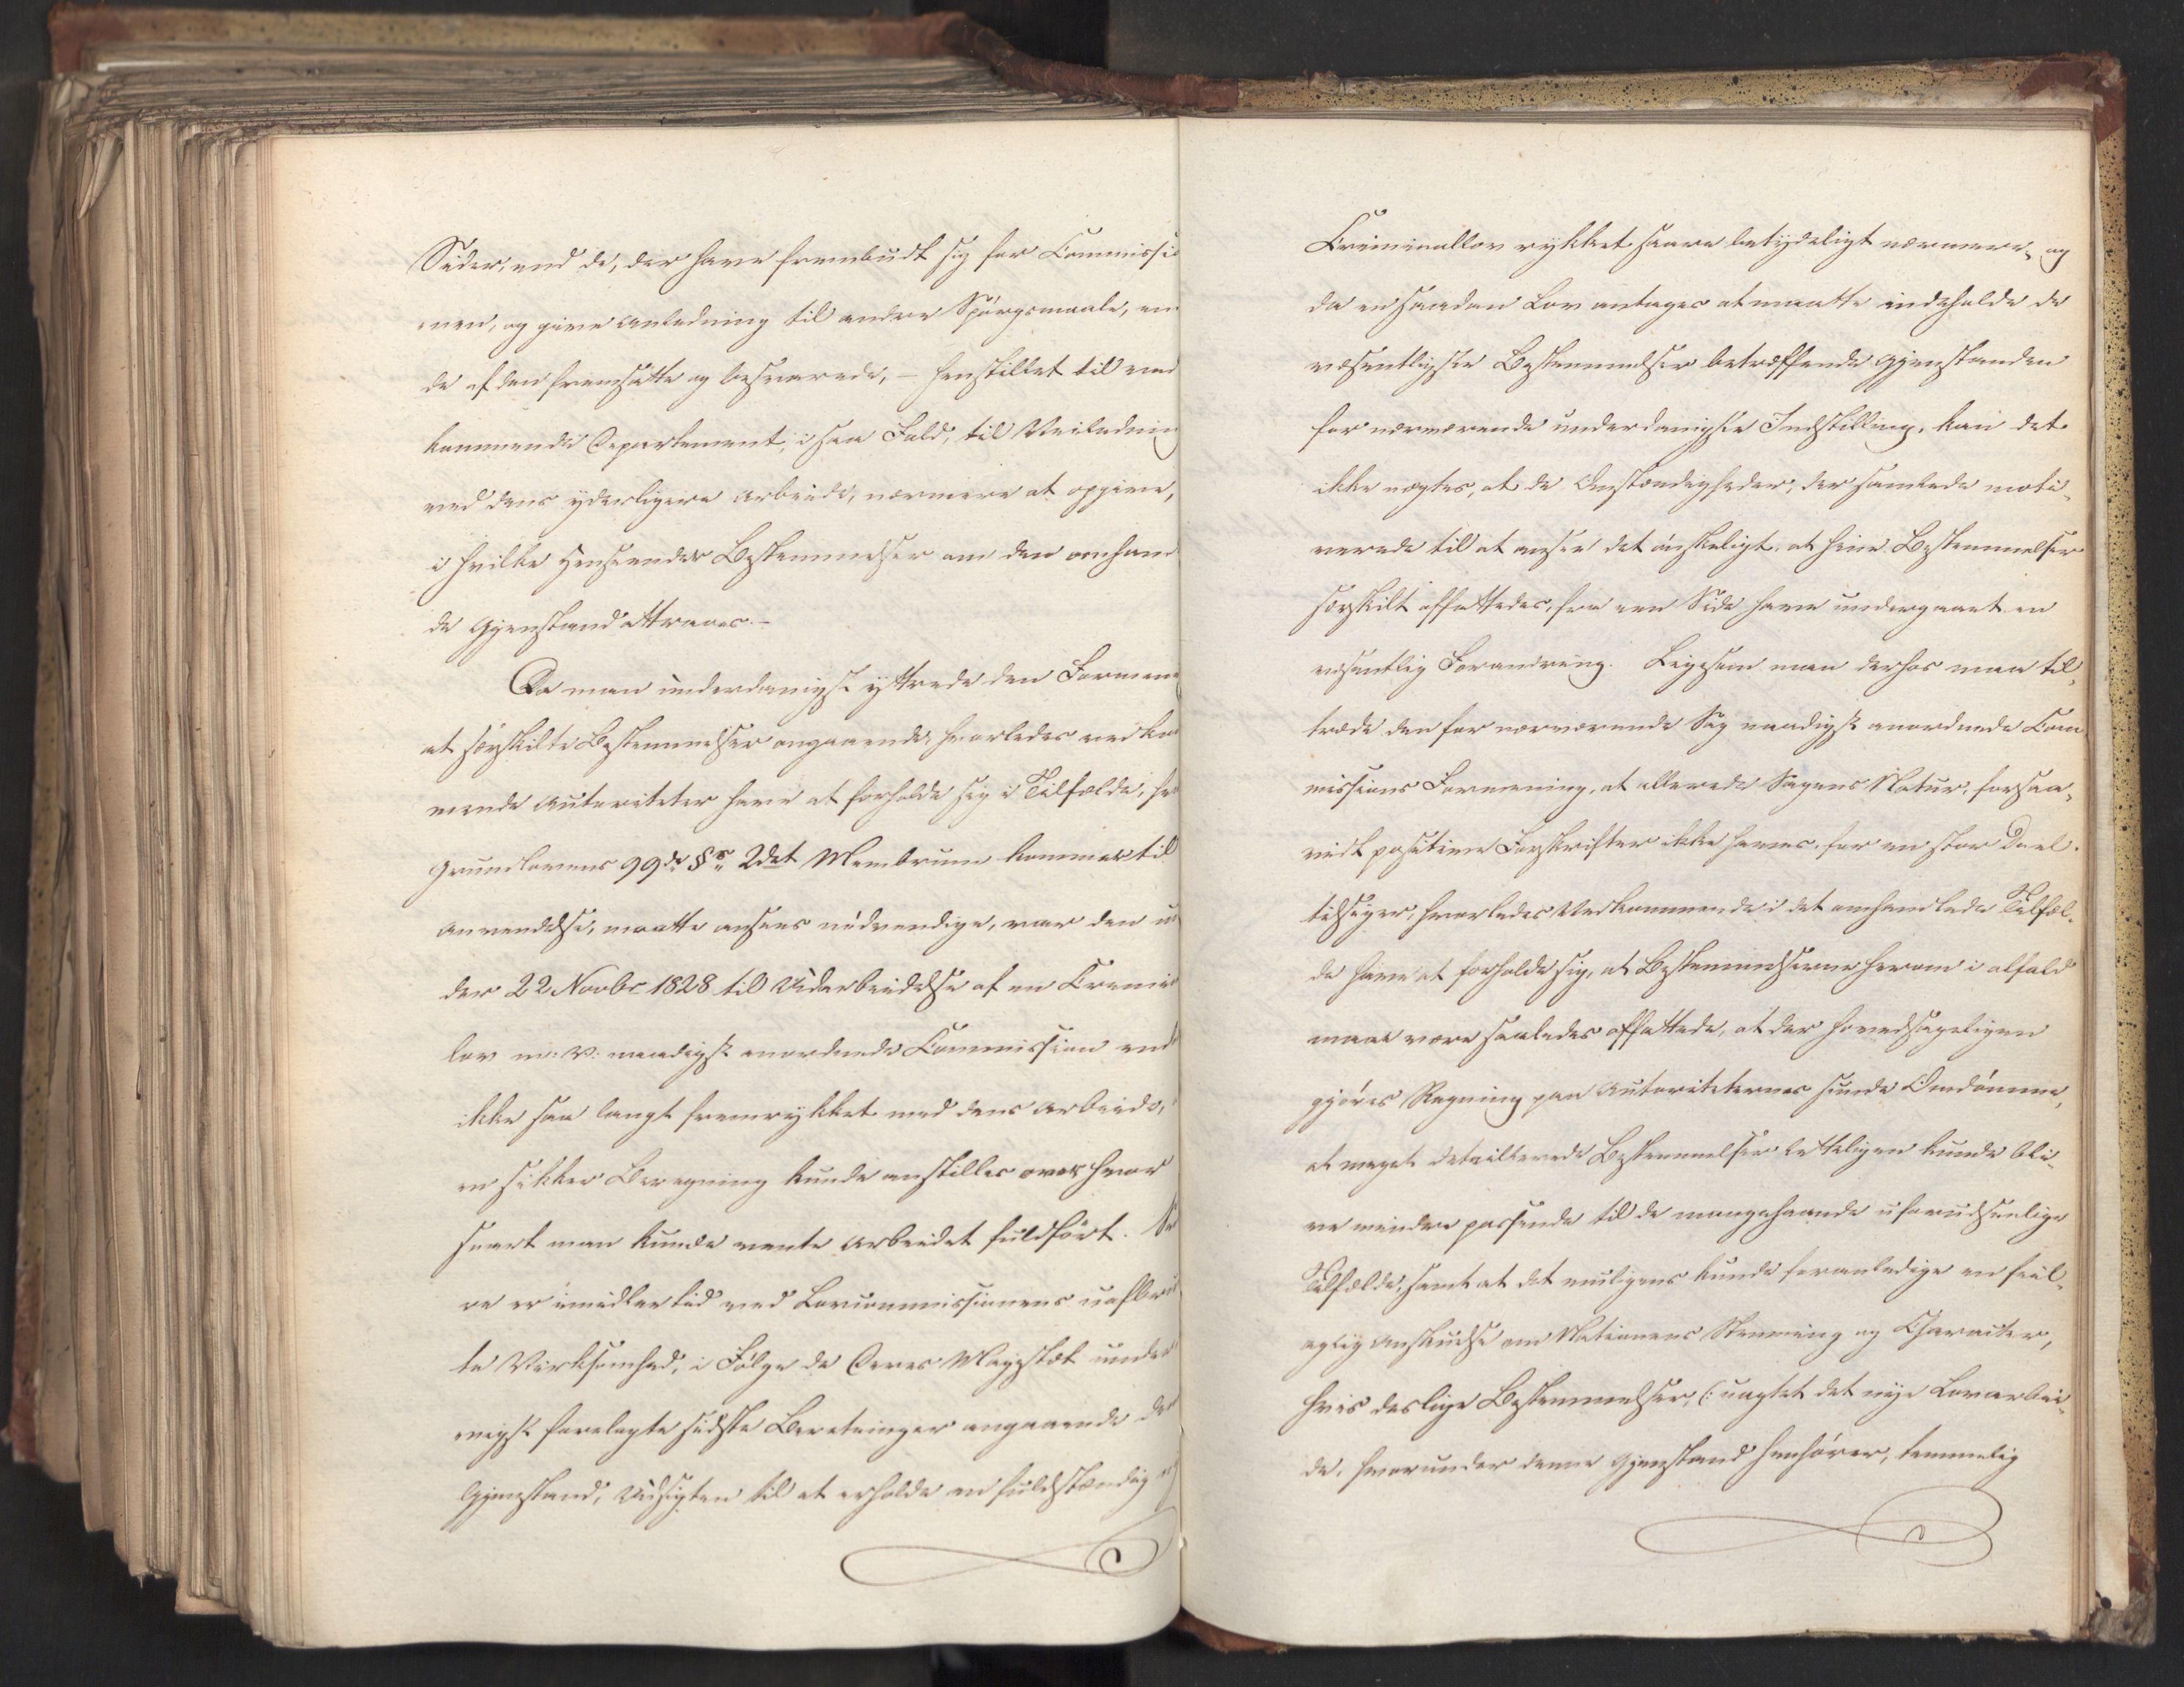 Sider, end de, der have frembudt sig for Commissi
onen, og give Anledning til andre Spørgsmaale, en
de af den fremsatte og besvarede, – henstillet til ved
kommende Departement, i saa Fald, til Veilednin
ved dens yderligere Arbeide, nærmere at opgive,
i hvilke Henseender Bestemmelser om den omhand
de Gjenstand attraaes. –
Da man underdanigst yttrede den Formeni
at særskilte Bestemmelser angaaende, hvorledes vedkom
mende Autoriteter have at forholde sig i Tilfælde, hv
Grundlovens 99de §s 2det Membrum kommer til
Anvendelse, maatte ansees nødvendige, var den un
der 22 Novbr 1828 til Udarbeidelse af en Crimi
lov m: v: naadigst anordnede Commission end
ikke saa langt fremrykket med dens Arbeide,
en sikker Beregning kunde anstilles over hvor
snart man kunde vente Arbeidet fuldført. Se
re er imidlertid ved Lovcommissionens uafbru
te Virksomhed, i Følge de Deres Majestæt under
nigst forelagte sidste Beretninger angaaende den
Gjenstand, Udsigten til at erholde en fuldstændig
Criminallov rykket saare betydeligt nærmere, og
da en saadan Lov antages at maatte indeholde de
væsentligste Bestemmelser betræffende Gjenstanden
for nærværende underdanigste Indstilling, kan det
ikke nægtes, at de Omstændigheder, der samlede moti-
verede til at ansee det ønskeligt, at hine Bestemmelser
særskilt affattedes, fra een Side have undergaaet en
væsentlig Forandring. Ligesom man derhos maa til-
træde den for nærværende Sag naadigst anordnede Com
missions Formening, at allerede Sagens Natur, forsaa-
vidt positive Forskrifter ikke haves, for en stor Deel
tilsiger, hvorledes Vedkommende i det omhandlede Tilfæl-
de have at forholde sig, at Bestemmelserne herom i alfald
maae være saaledes affattede, at der hovedsageligen
gjøres Regning paa Autoriteternes sunde Omdømme,
at meget detaillerede Bestemmelser letteligen kunde bli-
ve mindre passende til de mangehaande uforudseelige
Tilfælde, samt at det muligens kunde foranledige en feil-
agtig Anskuelse om Nationens Stemning og Character,
hvis deslige Bestemmelser, (: uagtet det nye Lovarbei-
de, hvorunder denne Gjenstand henhører, temmelig